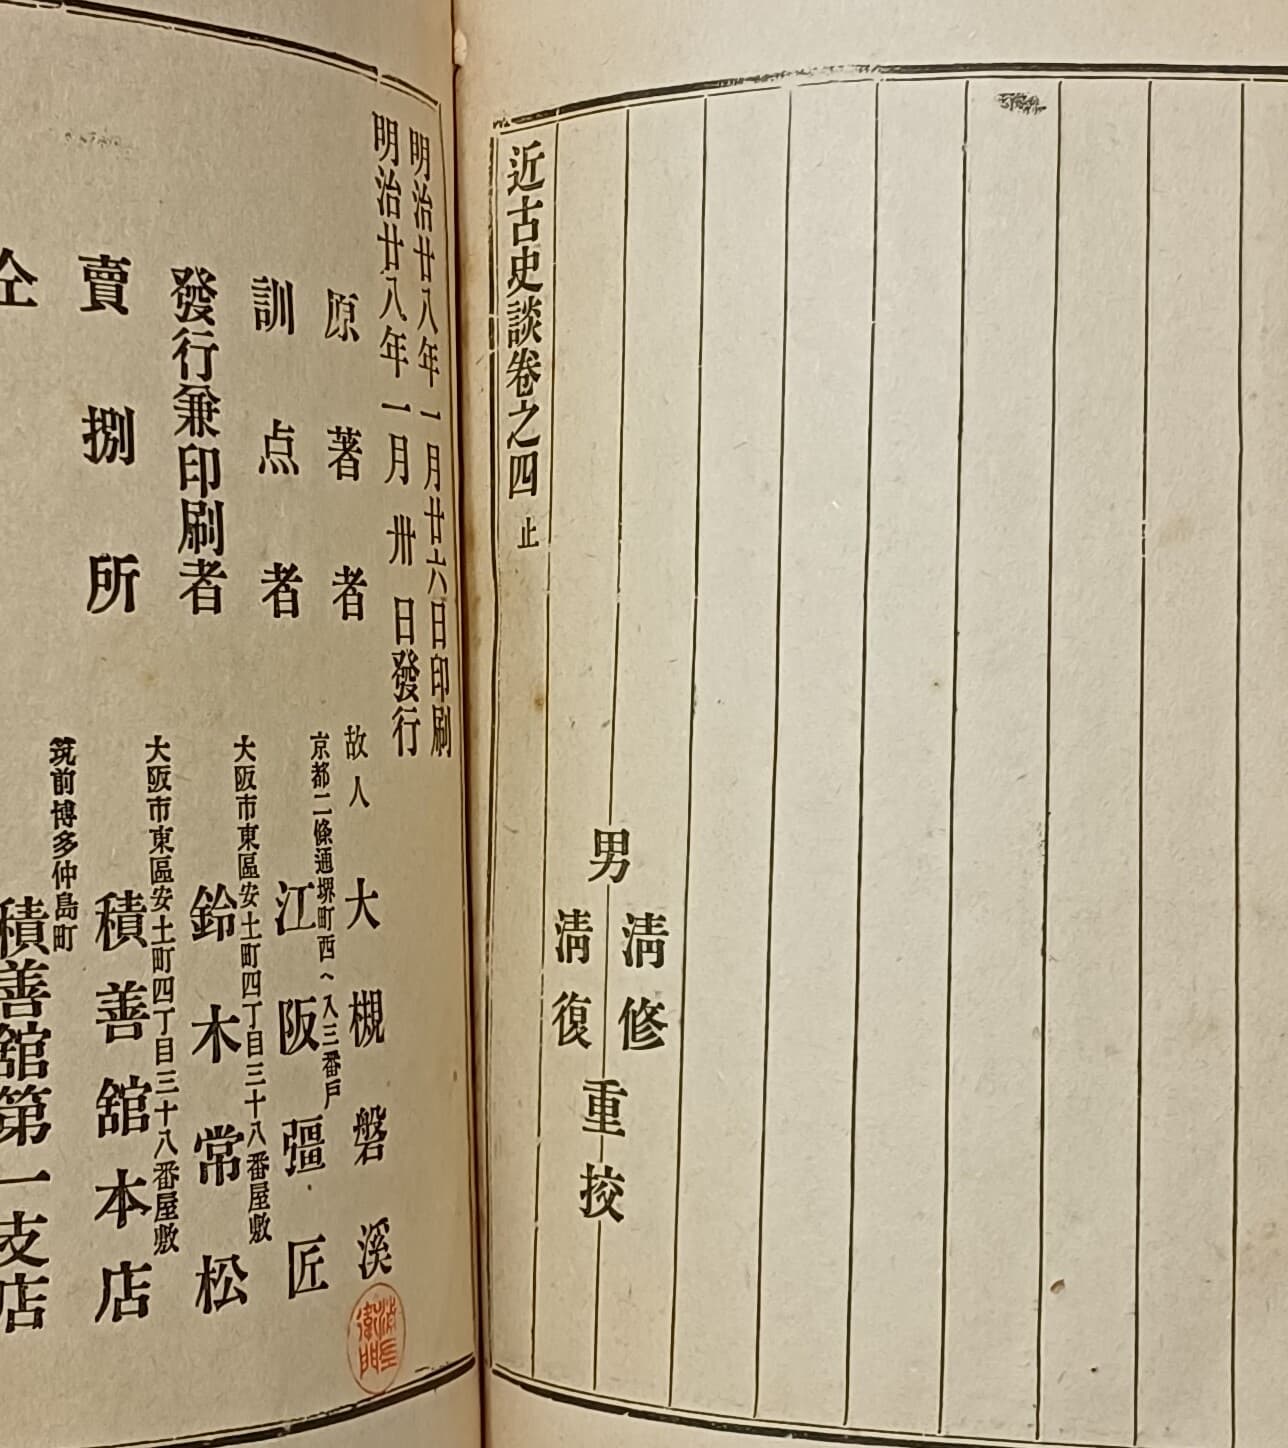 男
淸修
淸復
重挍
近古史談卷之四 止
明治廿八年一月廿六日印刷
明治廿八年一月卅日發行
原著者 故人 大槻磐溪
京都二條通堺町西へ入三番戸
訓点者 江阪彊匠
大阪市東區安土町四丁目三十八番屋敷
發行兼印刷者 鈴木常松
大阪市東區安土町四丁目三十八番屋敷
賣捌所 積善舘本店
筑前博多仲島町
仝 積善舘第一支店